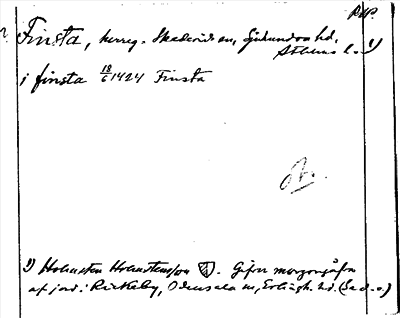 Finsta, herreg. Skederids sn, Sjuhundra hd,
Sthlms l. 1)
i finsta 18/6 1424 Finsta
1) Holmsten Holmstensson. Gifver morgongåfva
af jord i Rickeby, Odensala sn, Erlingh. hd. (Sed. o.)